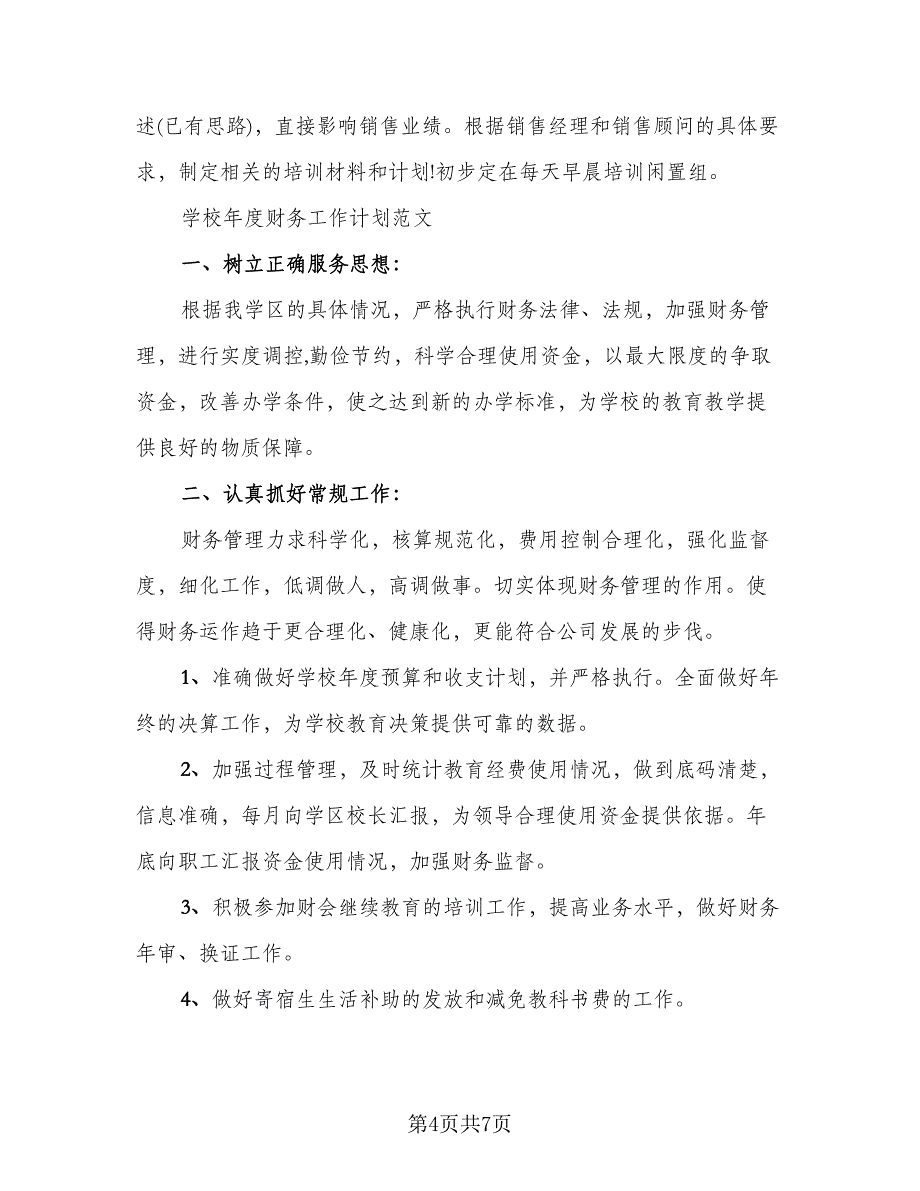 述(已有思路)，直接影响销售业绩。根据销售经理和销售顾问的具体要
求，制定相关的培训材料和计划!初步定在每天早晨培训闲置组。
学校年度财务工作计划范文
一、树立正确服务思想：
根据我学区的具体情况，严格执行财务法律、法规，加强财务管
理，进行实度调控,勤俭节约，科学合理使用资金，以最大限度的争取
资金，改善办学条件，使之达到新的办学标准，为学校的教育教学提
供良好的物质保障。
二、认真抓好常规工作：
财务管理力求科学化，核算规范化，费用控制合理化，强化监督
度，细化工作，低调做人，高调做事。切实体现财务管理的作用。使
得财务运作趋于更合理化、健康化，更能符合公司发展的步伐。
1、准确做好学校年度预算和收支计划，并严格执行。全面做好年
终的决算工作，为学校教育决策提供可靠的数据。
2、加强过程管理，及时统计教育经费使用情况，做到底码清楚，
信息准确，每月向学区校长汇报，为领导合理使用资金提供依据。年
底向职工汇报资金使用情况，加强财务监督。
3、积极参加财会继续教育的培训工作，提高业务水平，做好财务
年审、换证工作。
4、做好寄宿生生活补助的发放和减免教科书费的工作。
第4页共7页